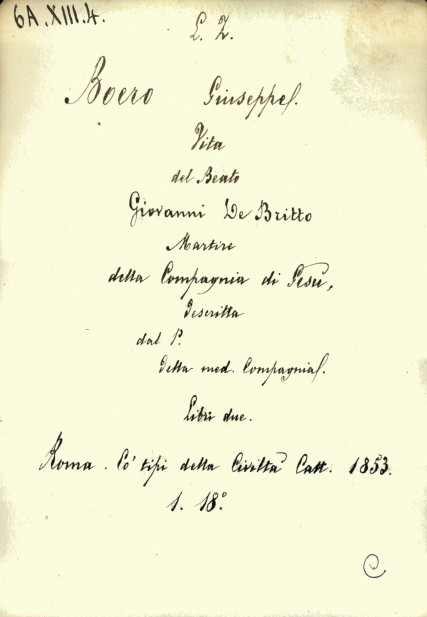 6A.XIII.4.
L. Z.
Boero Giuseppe.
Vita
del Beato
Giovanni De Britto
Martire
della Compagnia di Gesù,
descritta
dal P.
della med. Compagnia.
Libri due.
Roma. Co' tipi della Civiltà Catt. 1853.
1. 18°.
C